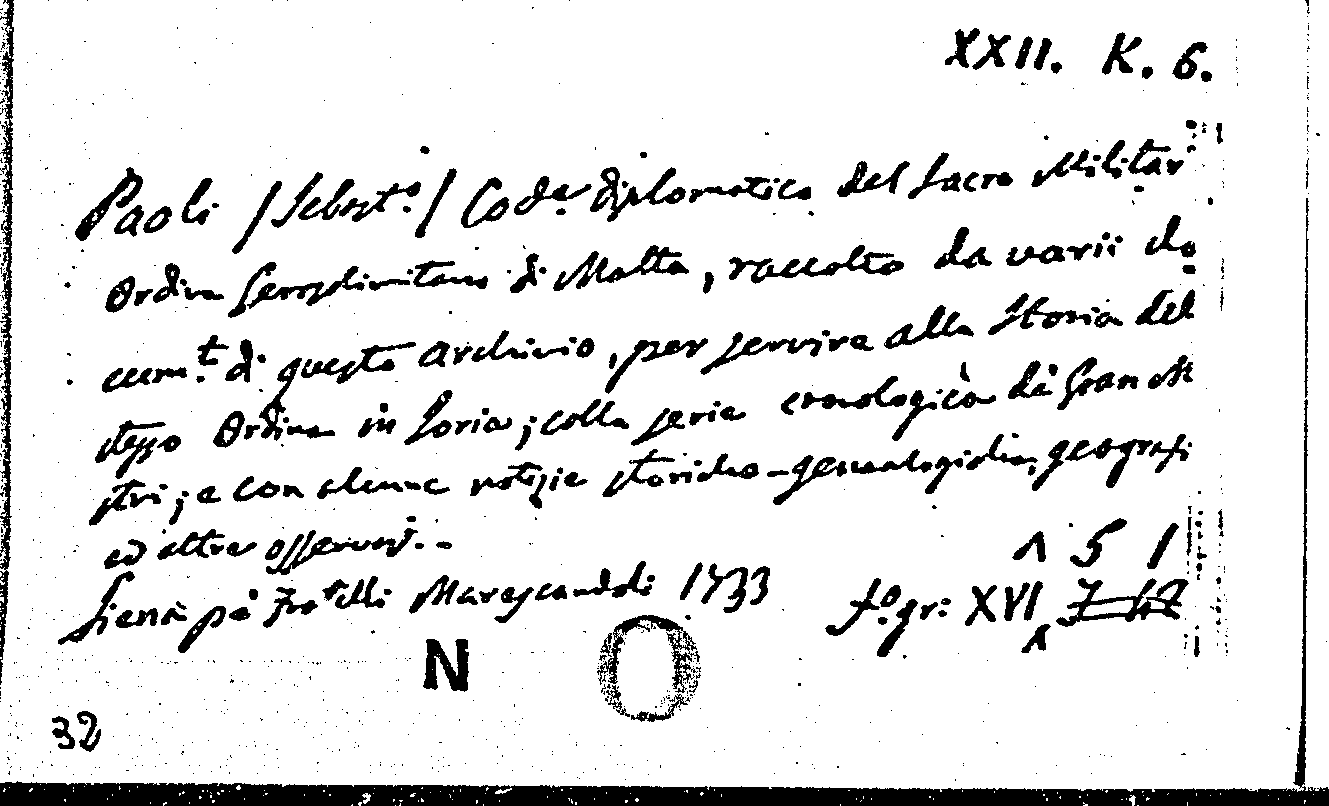 XXII. K. 6.
Paoli /Sebast.º/ Cod.e diplomatico del Sacro Militar
Ordine Gerosolimitano di Malta, raccolto da varii do
cum.t di questo archivio, per servire alla Storia del
stesso Ordine in Soria; colla serie cronologica dè Gran M
stri; e con alcune notizie storiche-genealogiche, geografi
ed altre osservaz.
Siena pè Fratelli Marescandoli 1733
f.º gr: XVI 7 42
^ 5 1
N O
32